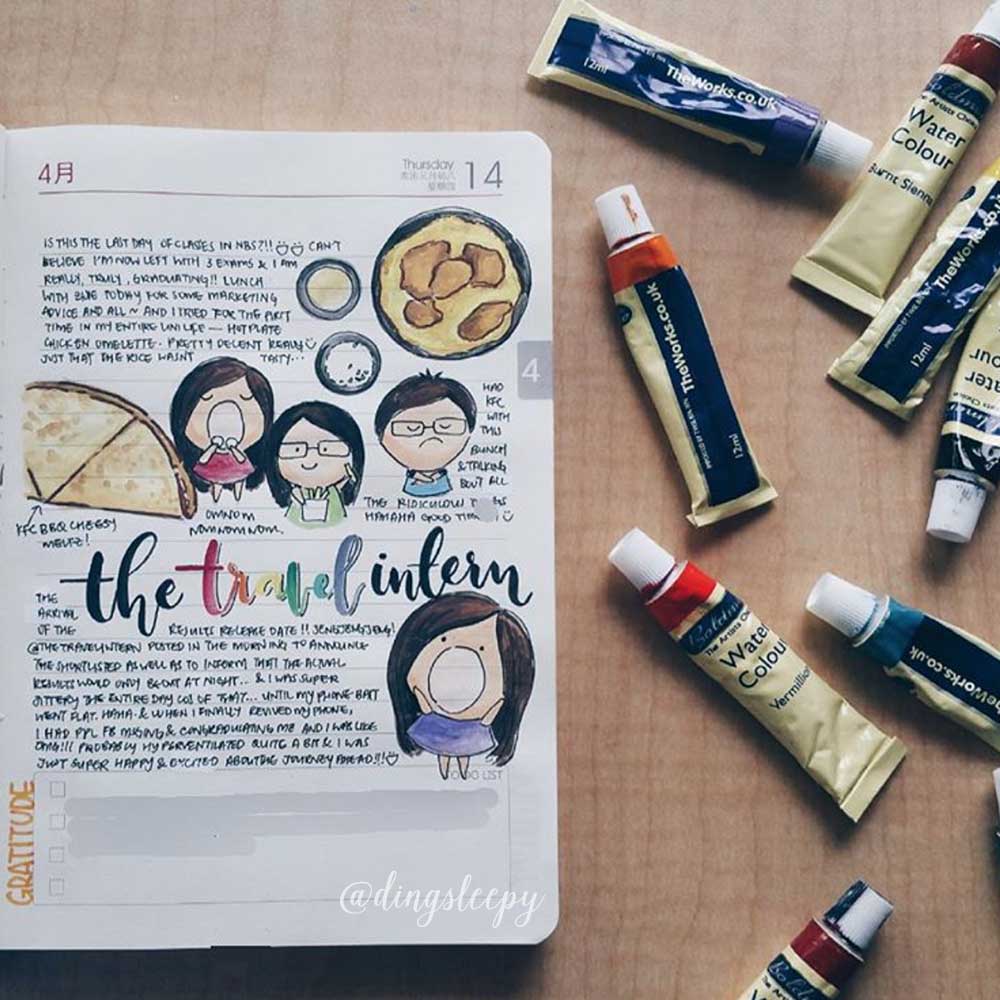 4月
Thursday
星期四
14
IS THIS THE LAST DAY OF CLASSES IN NBS?!! CAN'T
BELIEVE I'M NOW LEFT WITH 3 EXAMS & I AM
REALLY, TRULY, GRADUATING!! LUNCH
WITH TODAY FOR SOME MARKETING
ADVICE AND ALL ~ AND I TRIED FOR THE FIRST
TIME IN MY ENTIRE UNI LIFE — HOTPLATE
CHICKEN OMELETTE. PRETTY DECENT REALLY
JUST THAT THE RICE WASN'T TASTY...
4
HAD
KFC
WITH
THIS
BUNCH
& TALKING
BOUT ALL
THE RIDICULOUS
HAHAHA GOOD
OMNOM
NOMNOMNOM.
KFC BBQ CHEESY
MELTZ!
the travel intern
THE
ARRIVAL
OF THE RESULTS RELEASE DATE!! JENGJENGJENG!
@THETRAVELINTERN POSTED IN THE MORNING TO ANNOUNCE
THE SHORTLISTED AS WELL AS TO INFORM THAT THE ACTUAL
RESULTS WOULD ONLY BE OUT AT NIGHT.. & I WAS SUPER
JITTERY THE ENTIRE DAY COS OF THAT... UNTIL MY PHONE BATT
WENT FLAT. HAHA. & WHEN I FINALLY REVIVED MY PHONE,
I HAD PPL FB MSGING & CONGRADULATING ME AND I WAS LIKE
OMG!!! PROBABLY HYPERVENTILATED QUITE A BIT & I WAS
JUST SUPER HAPPY & EXCITED ABOUT THE JOURNEY AHEAD!!!
TO DO LIST
GRATITUDE
@dingsleepy
TheWorks.co.uk
12ml
Boldmere
The Artists Choice
Water
Colour
Burnt Sienna
TheWorks.co.uk
12ml
TheWorks.co.uk
12ml
Water
Colour
Boldmere
The Artists Choice
Water
Colour
Vermillion
TheWorks.co.uk